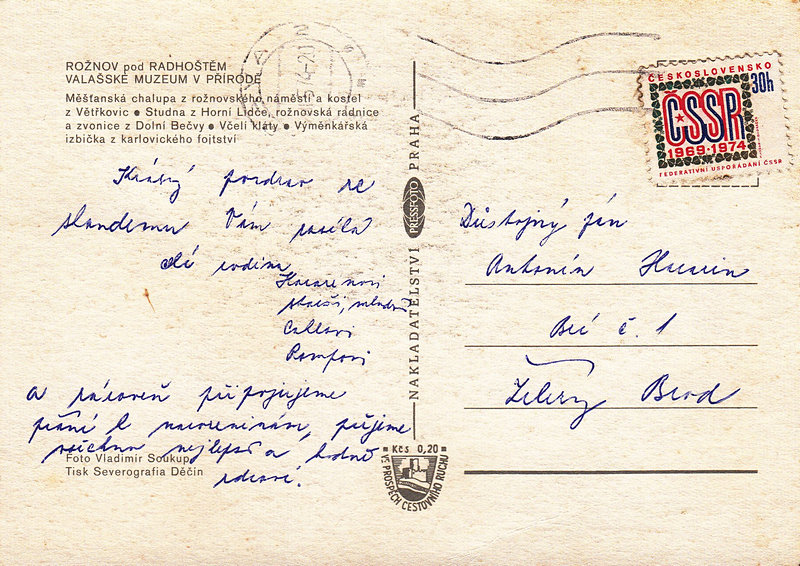 ROŽNOV pod RADHOŠTĚM
VALAŠSKÉ MUZEUM V PŘÍRODĚ
Měšťanská chalupa z rožnovského náměstí a kostel
z Větřkovic • Studna z Horní Lidče, rožnovská radnice
a zvonice z Dolní Bečvy • Včelí kláty • Výměnkářská
izbička z karlovického fojtství
Krásný pozdrav ze
Vám posílá
rodina
starší, mladší
a zároveň připojujeme
přání k narozeninám, přejeme
všechno nejlepší a hodně
zdraví!
Foto Vladimír Soukup
Tisk Severografia Děčín
NAKLADATELSTVÍ PRESSFOTO PRAHA
Kčs 0,20
VE PROSPĚCH CESTOVNÍHO RUCHU
ČESKOSLOVENSKO
30h
ČSSR
1969·1974
FEDERATIVNÍ USPOŘÁDÁNÍ ČSSR
Důstojný pán
Antonín
č. 1
Brod